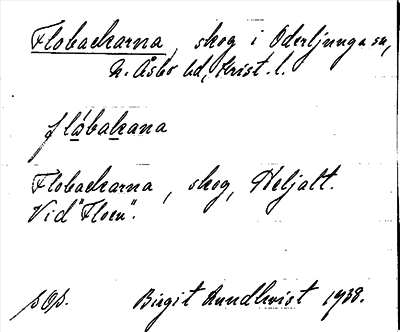 Flobackarna, skog i Oderljunga sn,
N. Åsbo hd, Krist. l.
flåbakana
Flobackarna, skog, Heljalt.
Vid "Floen".
sOp. Birgit Rundkvist 1938.